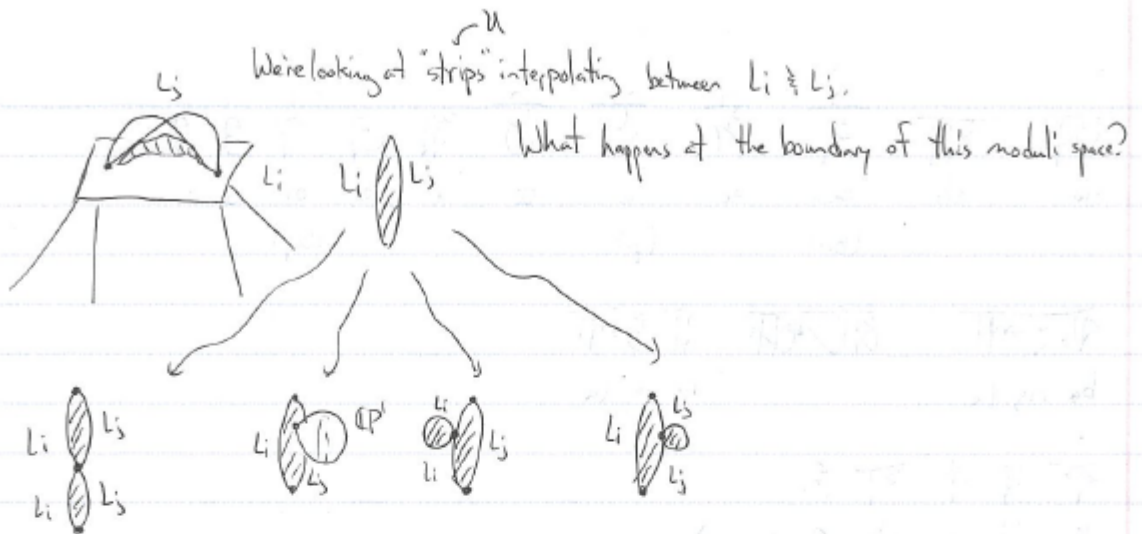 u
We're looking at "strips" interpolating between Li & Lj.
Lj
What happens at the boundary of this moduli space?
Li
Li Lj
Li Lj
Li Lj
Li Lj
ℂP¹
Li
Li Lj
Li Lj
Lj